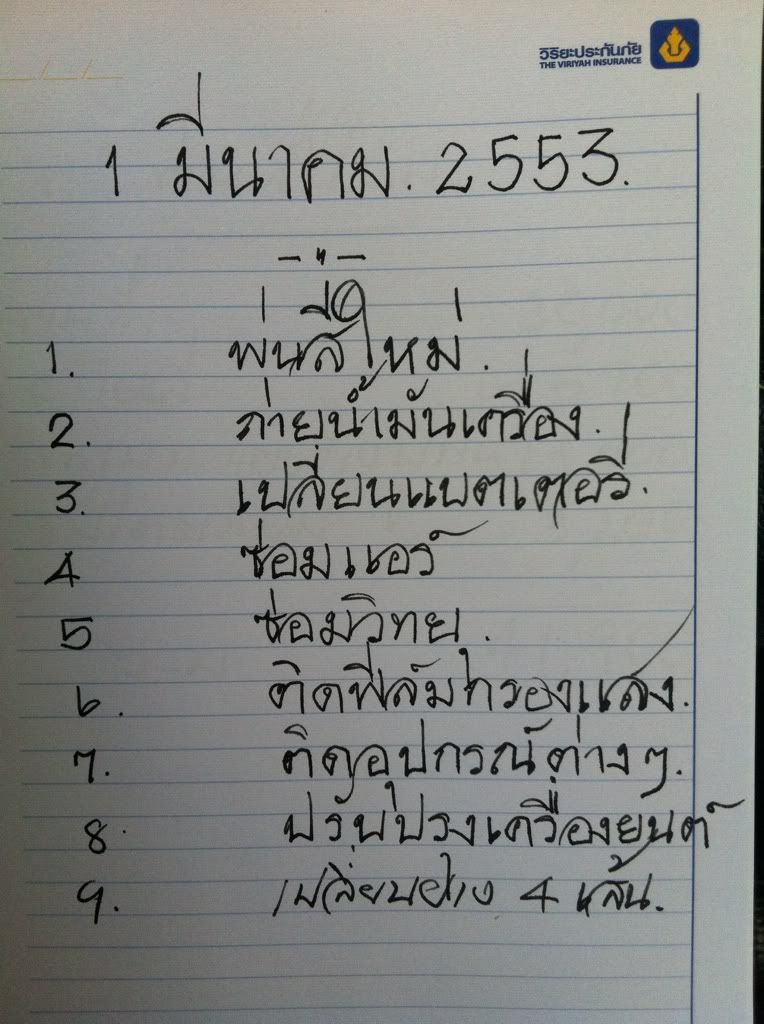 วิริยะประกันภัย
THE VIRIYAH INSURANCE
1 มีนาคม. 2553.
— " —
1. พ่นสีใหม่.
2. ถ่ายน้ำมันเครื่อง.
3. เปลี่ยนแบตเตอรี่.
4 ซ่อมแอร์
5 ซ่อมวิทยุ.
6. ติดฟิล์มกรองแสง.
7. ติดอุปกรณ์ต่างๆ.
8. ปรับปรุงเครื่องยนต์
9. เปลี่ยนยาง 4 เส้น.